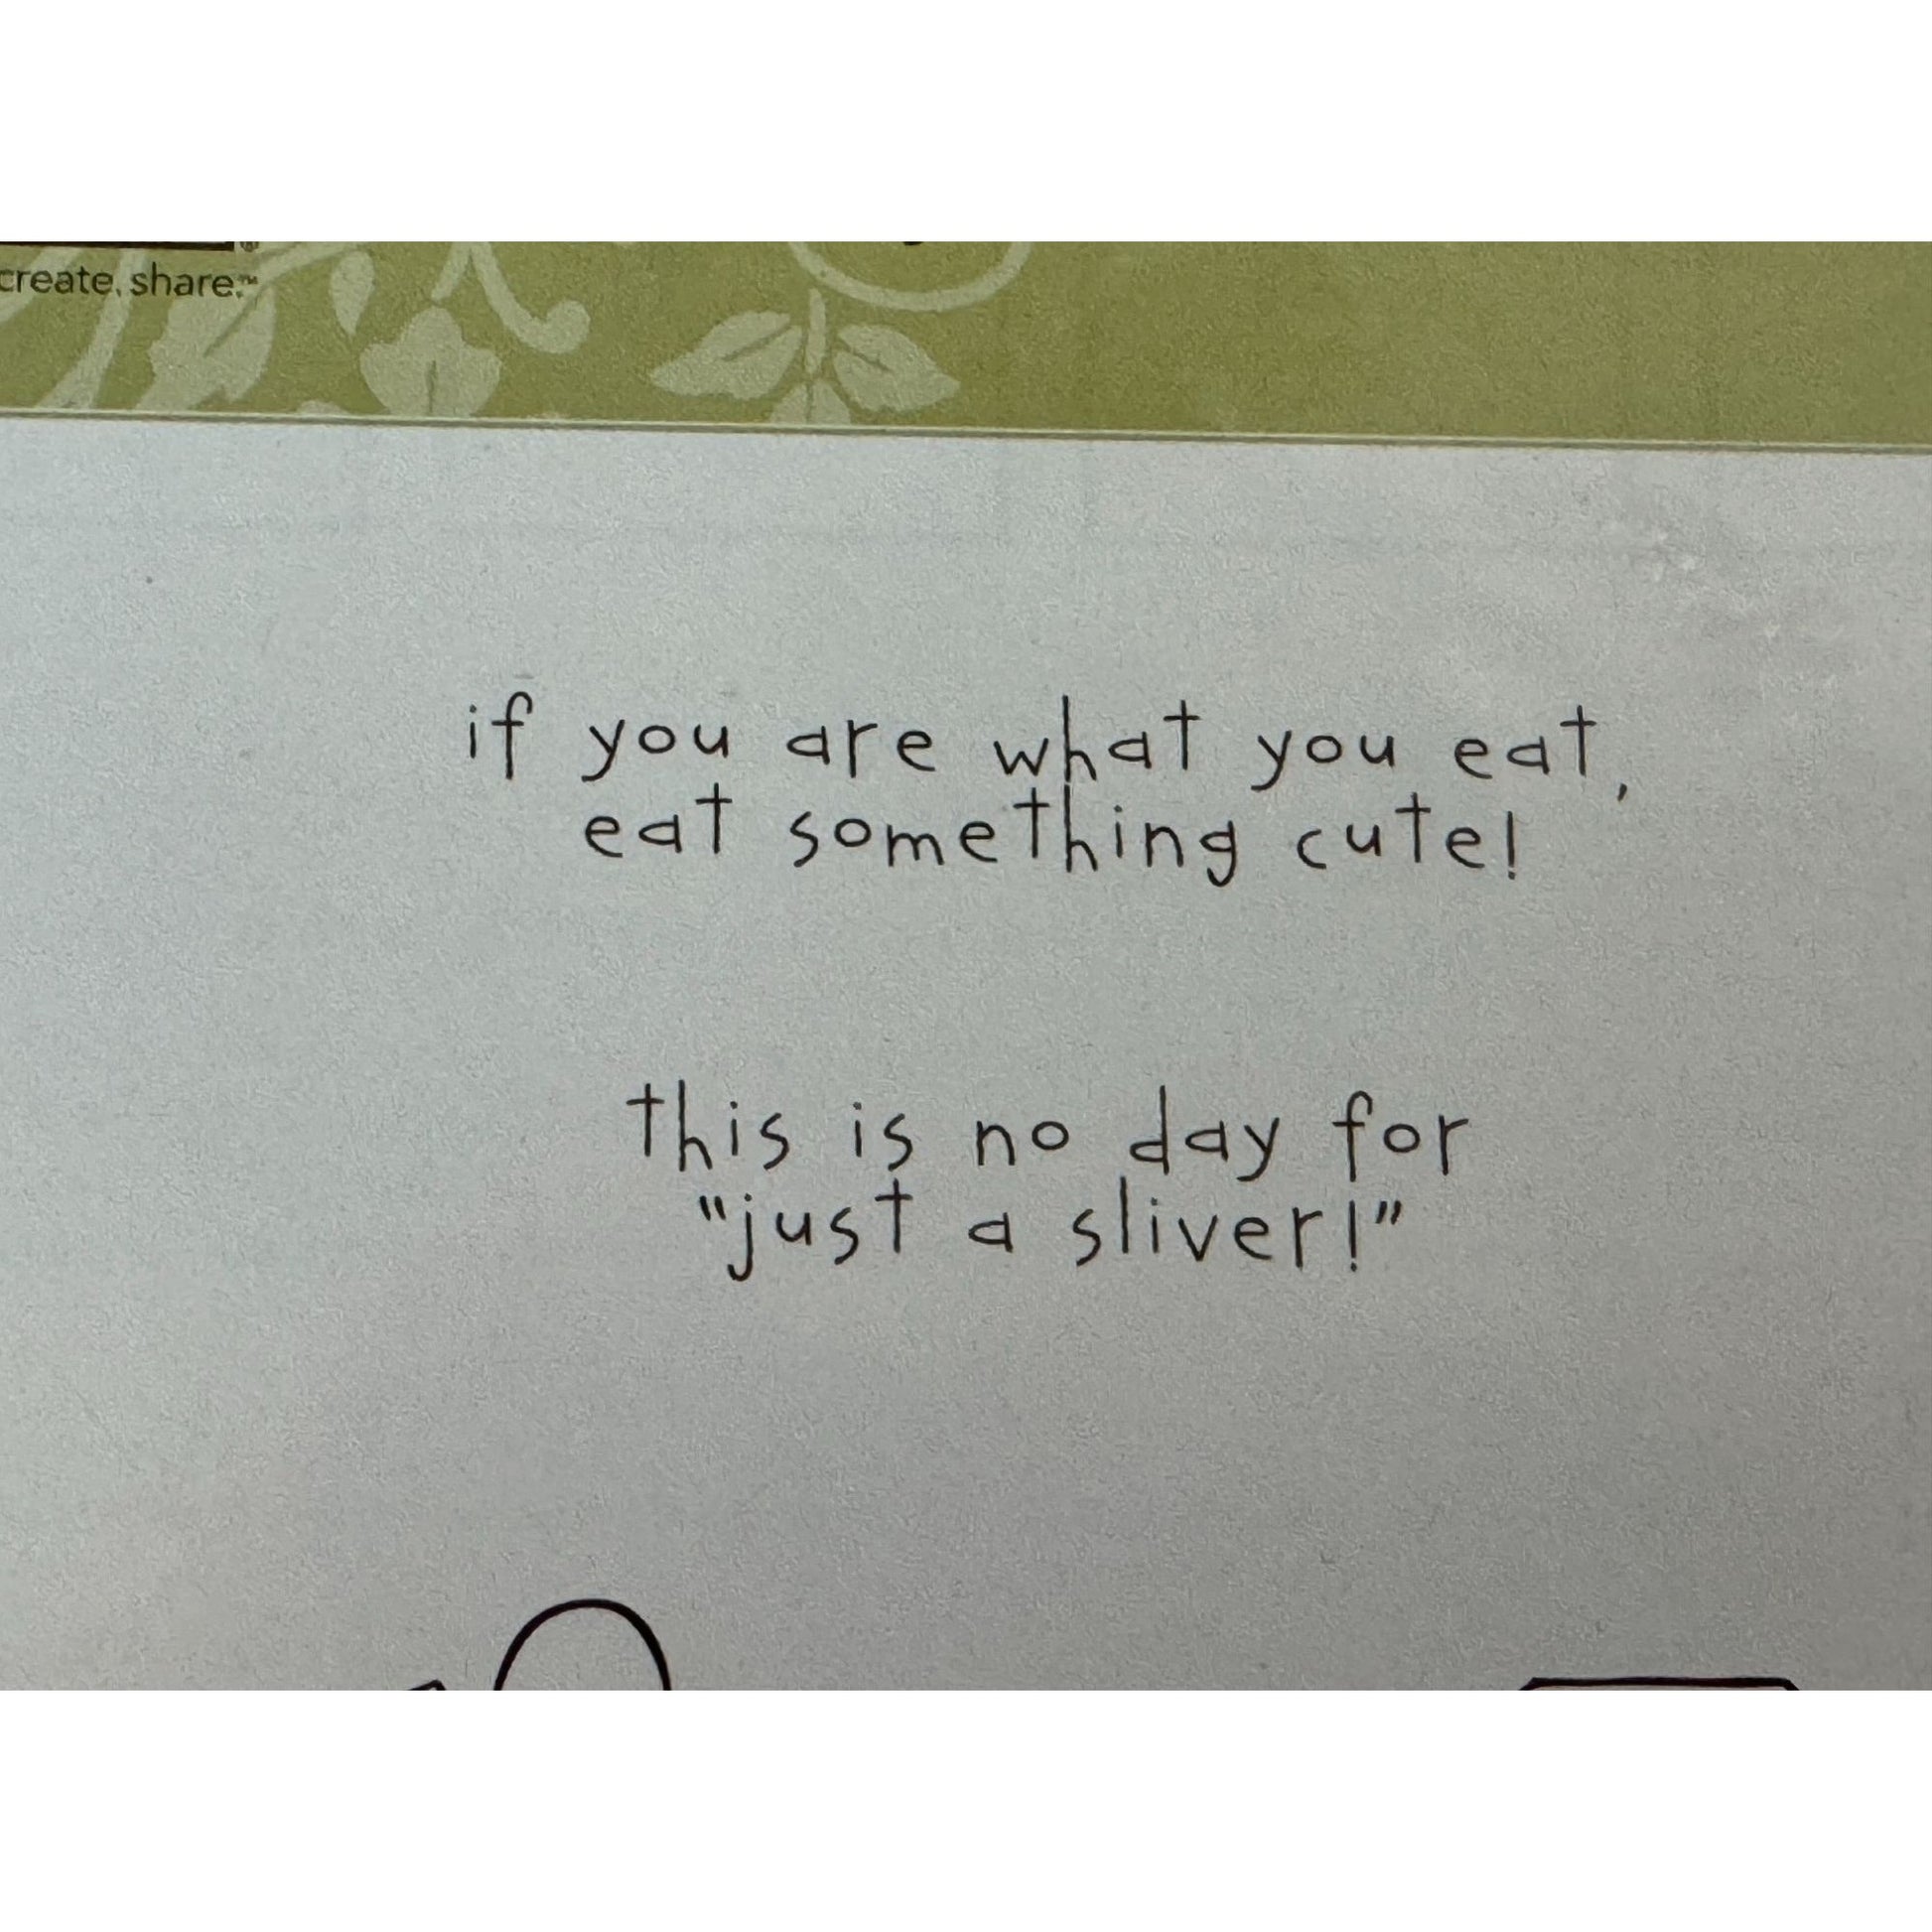 create. share.™
if you are what you eat,
eat something cute!
this is no day for
"just a sliver!"